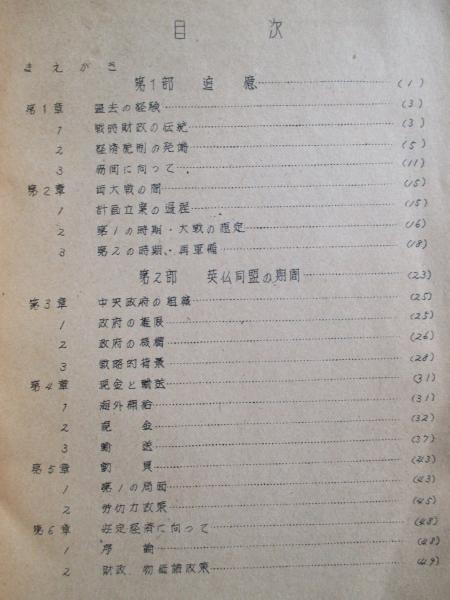 目次
まえがき
第1部 追憶 (1)
第1章 過去の経験 (3)
1 戦時財政の伝統 (3)
2 経済統制の発端 (5)
3 に向って (11)
第2章 両大戦の間 (15)
1 計画立案の過程 (15)
2 第1の時期・大戦の想定 (16)
3 第2の時期・再軍備 (18)
第2部 英仏同盟の期間 (23)
第3章 中央政府の組織 (25)
1 政府の権限 (25)
2 政府の機構 (26)
3 戦略的背景 (28)
第4章 現金と輸送 (31)
1 海外補給 (31)
2 現金 (32)
3 輸送 (37)
第5章 動員 (43)
1 第1の局面 (43)
2 労働力政策 (45)
第6章 安定経済に向って (48)
1 序論 (48)
2 財政、物価諸政策 (49)